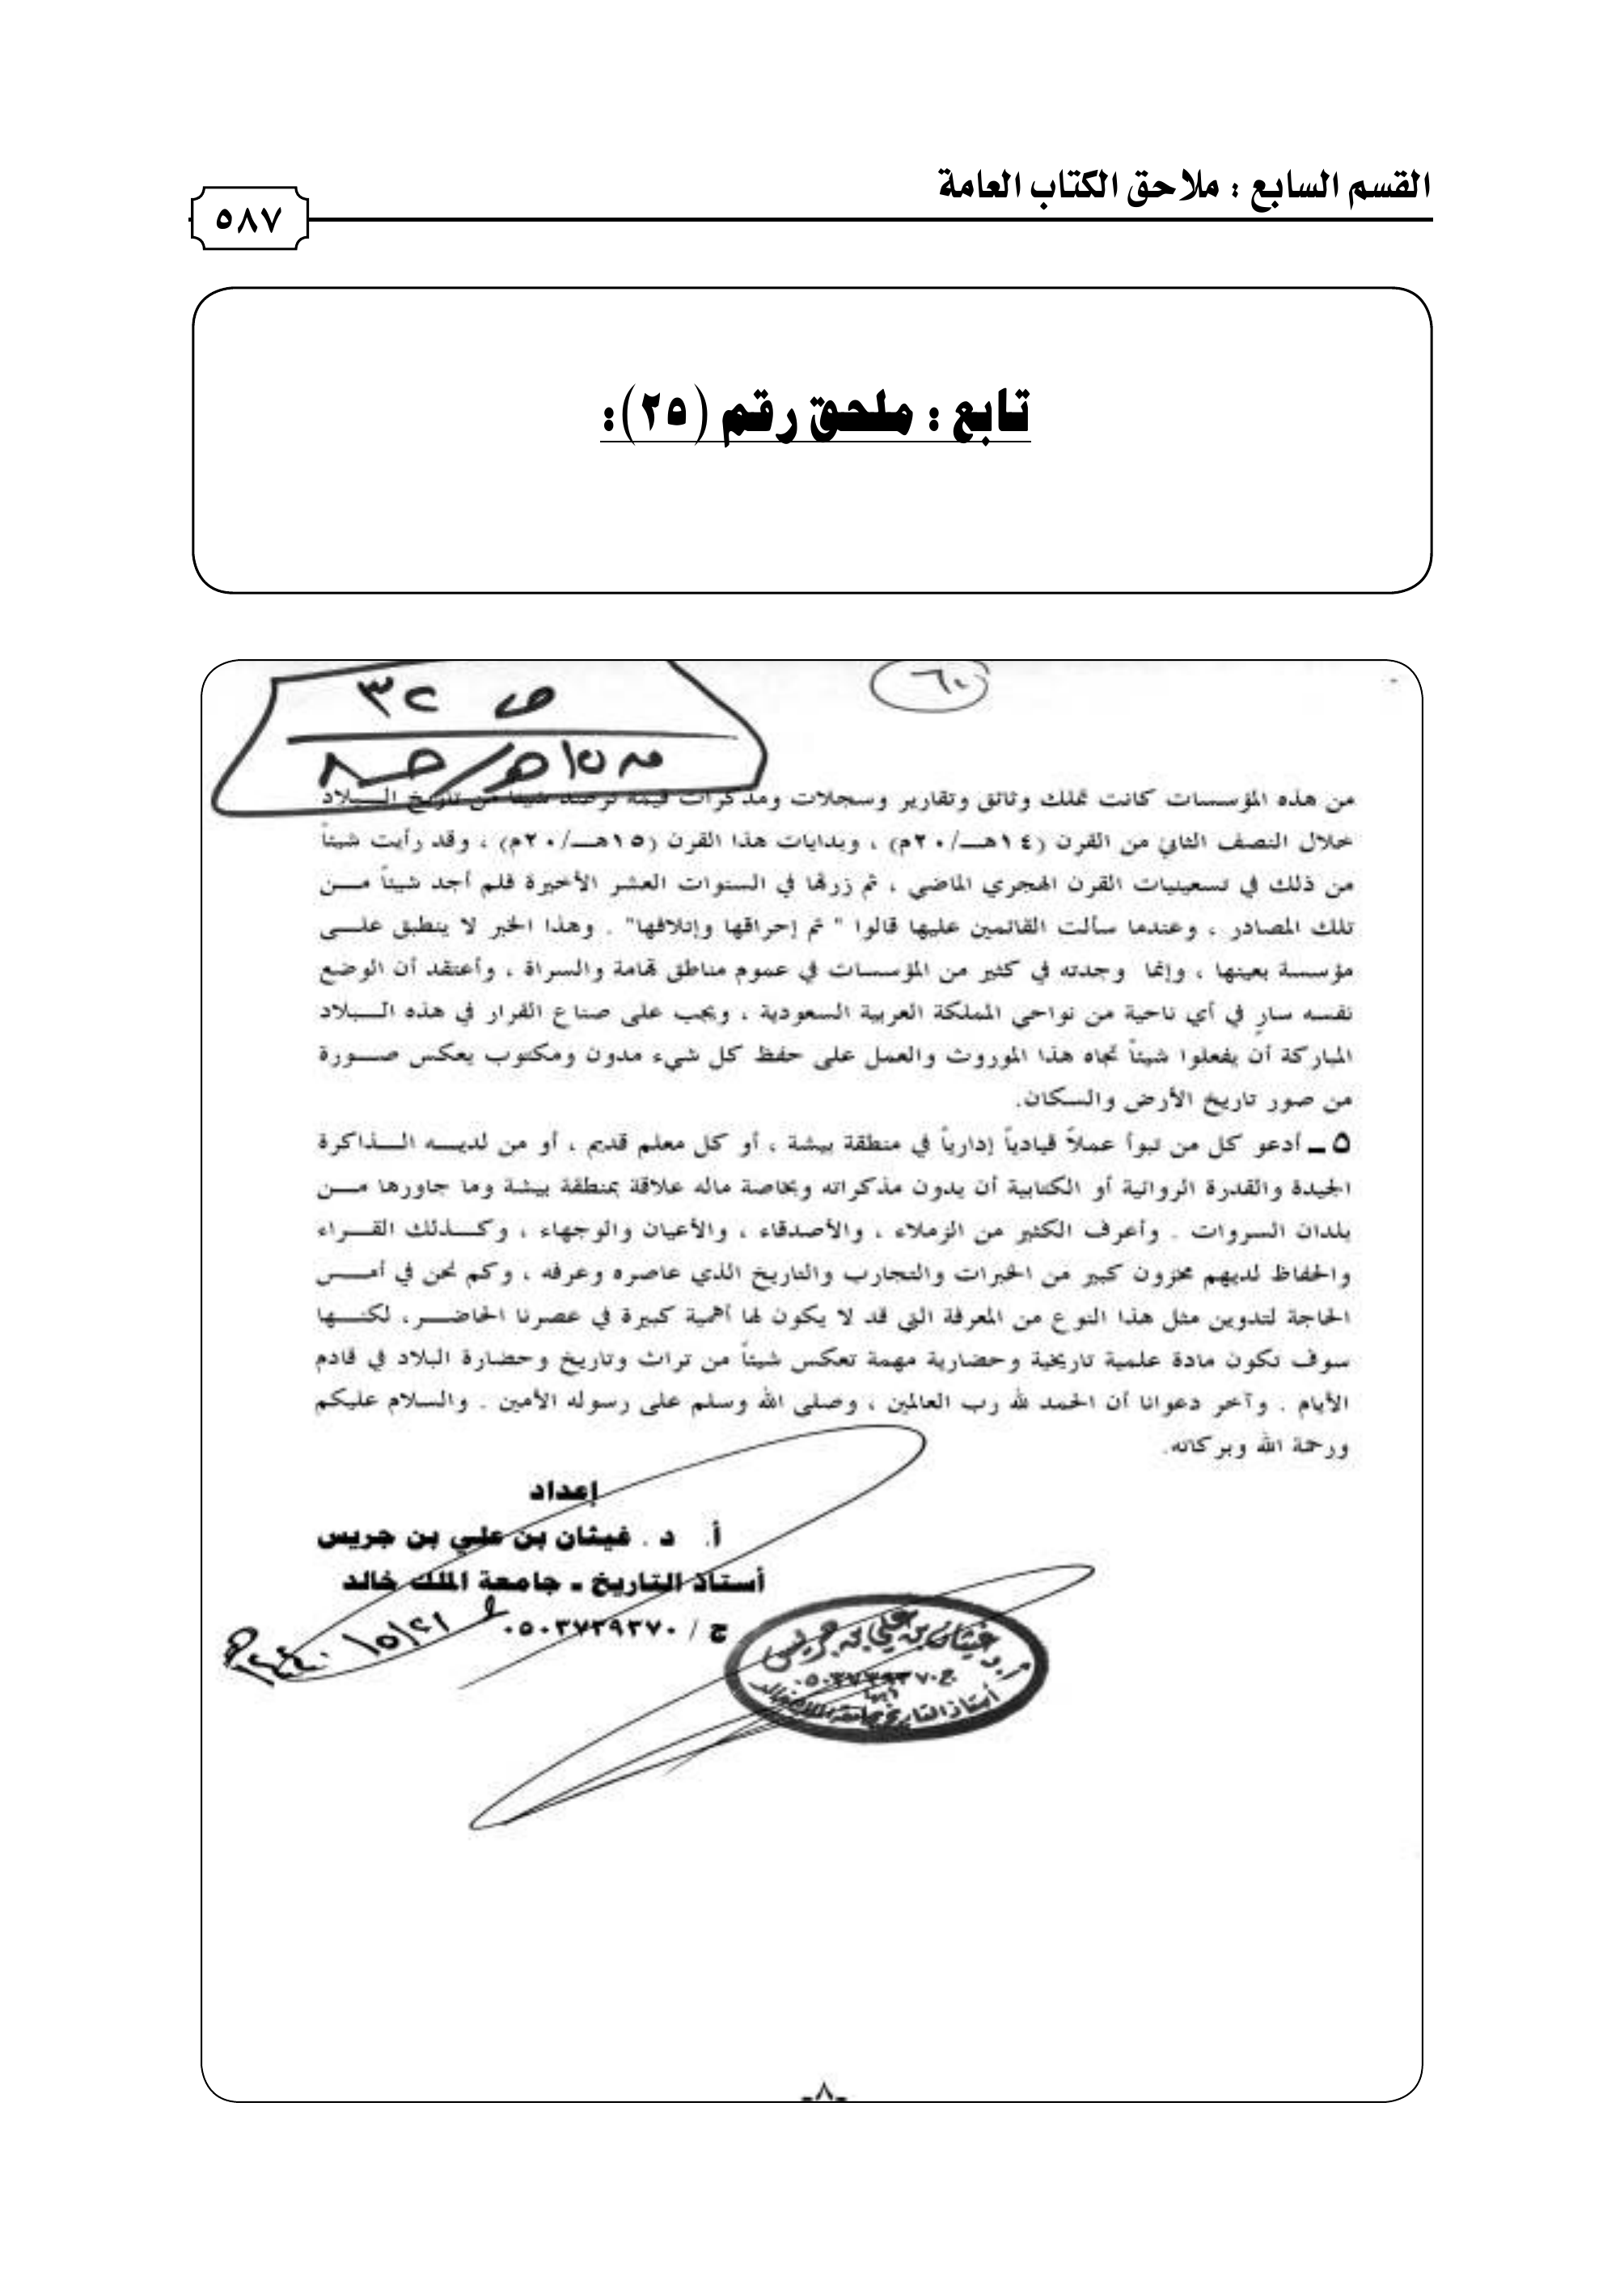 القسم السابع : ملاحق الكتاب العامة
٥٨٧
تابع : ملحق رقم (٢٥):
٦٠
ص ٣٢
من هذه المؤسسات كانت تملك وثائق وتقارير وسجلات ومذكرات قيمة ترصد شيئاً من تاريخ البلاد
خلال النصف الثاني من القرن (١٤هـ/٢٠م) ، وبدايات هذا القرن (١٥هـ/٢٠م) ، وقد رأيت شيئاً
من ذلك في تسعينيات القرن الهجري الماضي ، ثم زرتها في السنوات العشر الأخيرة فلم أجد شيئاً من
تلك المصادر ، وعندما سألت القائمين عليها قالوا " تم إحراقها وإتلافها" . وهذا الخبر لا ينطبق على
مؤسسة بعينها ، وإنما وجدته في كثير من المؤسسات في عموم مناطق تهامة والسراة ، وأعتقد أن الوضع
نفسه سارٍ في أي ناحية من نواحي المملكة العربية السعودية ، ويجب على صناع القرار في هذه البلاد
المباركة أن يفعلوا شيئاً تجاه هذا الموروث والعمل على حفظ كل شيء مدون ومكتوب يعكس صورة
من صور تاريخ الأرض والسكان.
٥ ـ أدعو كل من تبوأ عملاً قيادياً إدارياً في منطقة بيشة ، أو كل معلم قديم ، أو من لديه الذاكرة
الجيدة والقدرة الروائية أو الكتابية أن يدون مذكراته وبخاصة ماله علاقة بمنطقة بيشة وما جاورها من
بلدان السروات . وأعرف الكثير من الزملاء ، والأصدقاء ، والأعيان والوجهاء ، وكذلك القراء
والحفاظ لديهم مخزون كبير من الخبرات والتجارب والتاريخ الذي عاصره وعرفه ، وكم نحن في أمس
الحاجة لتدوين مثل هذا النوع من المعرفة التي قد لا يكون لها أهمية كبيرة في عصرنا الحاضر، لكنها
سوف تكون مادة علمية تاريخية وحضارية مهمة تعكس شيئاً من تراث وتاريخ وحضارة البلاد في قادم
الأيام . وآخر دعوانا أن الحمد لله رب العالمين ، وصلى الله وسلم على رسوله الأمين . والسلام عليكم
ورحمة الله وبركاته.
إعداد
أ. د . غيثان بن علي بن جريس
أستاذ التاريخ ـ جامعة الملك خالد
ج / ٠٥٠٣٧٣٩٣٧٠
أ.د غيثان بن علي بن جريس
ج ٠٥٠٣٧٣٩٣٧٠
أبها
أستاذ التاريخ جامعة الملك خالد
-٨-